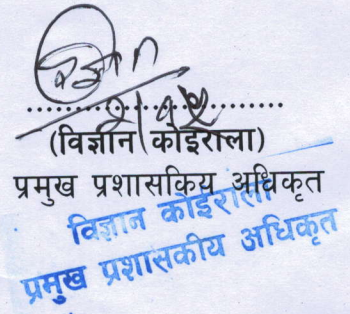 (विज्ञान कोइराला)
प्रमुख प्रशासकिय अधिकृत
विज्ञान कोइराला
प्रमुख प्रशासकीय अधिकृत